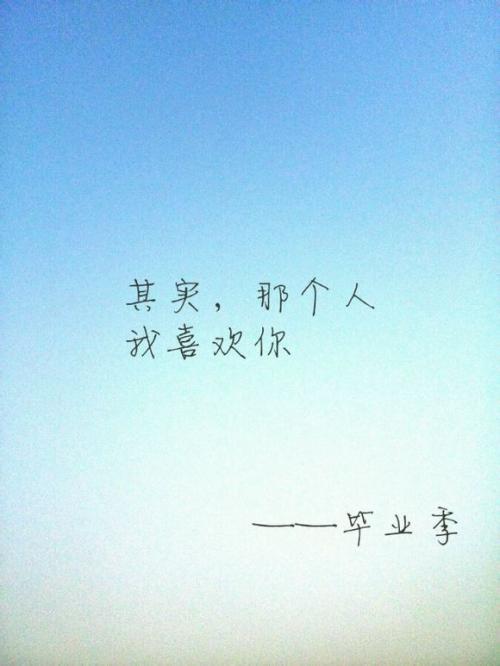 其实，那个人
我喜欢你
——毕业季